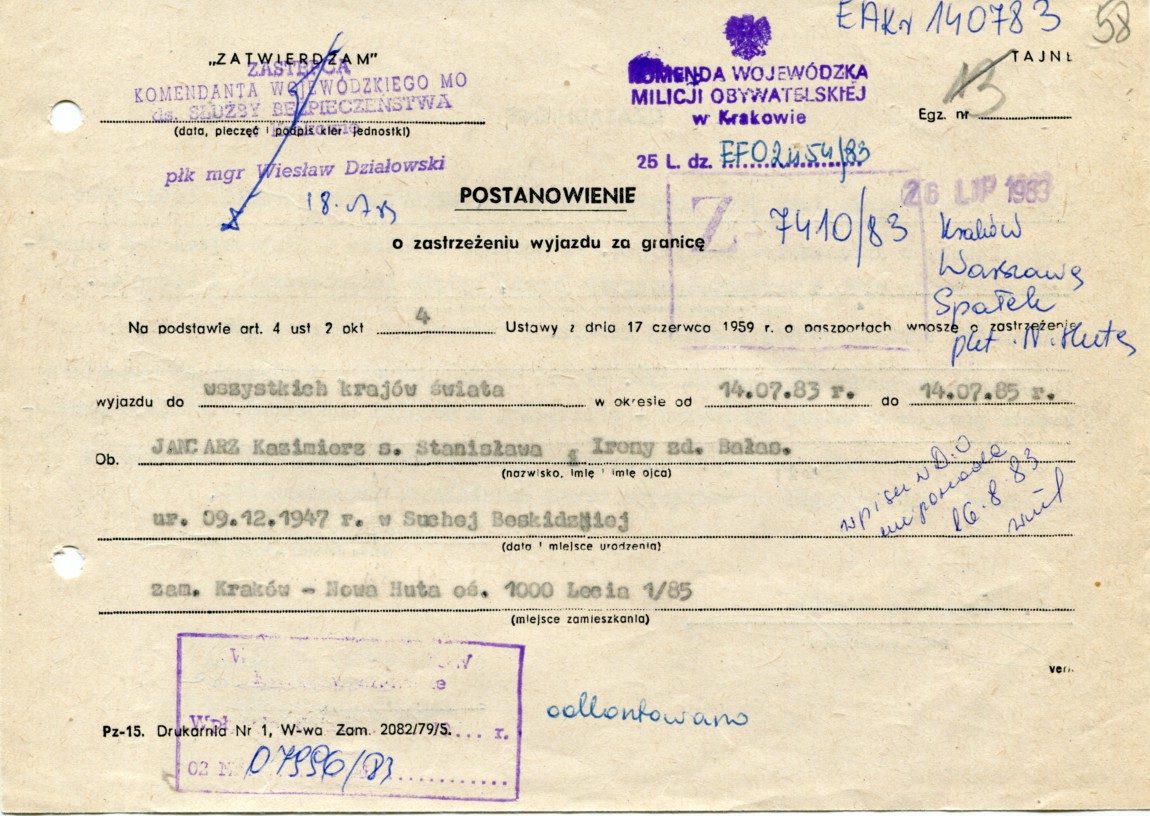 EAKr 140783
58
„ZATWIERDZAM"
ZASTĘPCA
KOMENDANTA WOJEWÓDZKIEGO MO
ds. SŁUŻBY BEZPIECZEŃSTWA
(data, pieczęć i podpis kier jednostki)
płk mgr Wiesław Działowski
KOMENDA WOJEWÓDZKA
MILICJI OBYWATELSKIEJ
w Krakowie
25 L. dz. EFO2454/83
TAJNE
13
Egz. nr
26 LIP 1983
POSTANOWIENIE
o zastrzeżeniu wyjazdu za granicę
Z
7410/83
Kraków
Warszawa
Spałek
plut. N. Huta
Na podstawie art. 4 ust 2 pkt 4 Ustawy z dnia 17 czerwca 1959 r. o paszportach wnoszę o zastrzeżenie
wyjazdu do wszystkich krajów świata w okresie od 14.07.83 r. do 14.07.85 r.
Ob. JANCARZ Kazimierz s. Stanisława i Ireny zd. Bałas.
(nazwisko, imię i imię ojca)
ur. 09.12.1947 r. w Suchej Beskidzkiej
(data i miejsce urodzenia)
wpisu w D.O
nie posiada
16.8.83
zam. Kraków - Nowa Huta oś. 1000 Lecia 1/85
(miejsce zamieszkania)
verte
odkontowano
Pz-15. Drukarnia Nr 1, W-wa Zam. 2082/79/5.
r.
07996/83